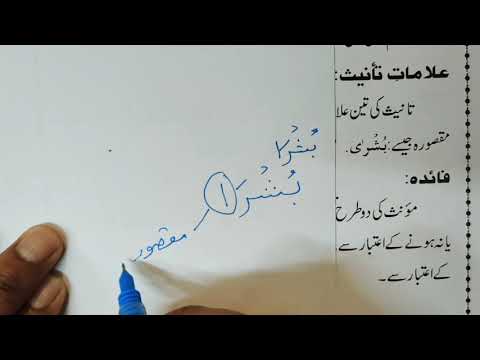 علامات تأنیث:
تانیث کی تین علا
مقصورہ جیسے: بُشْرٰی.
فائدہ:
مؤنث کی دو طرح
یا نہ ہونے کے اعتبار سے
کے اعتبار سے۔
بُشْرٰ
بُشْرَا
مقصور